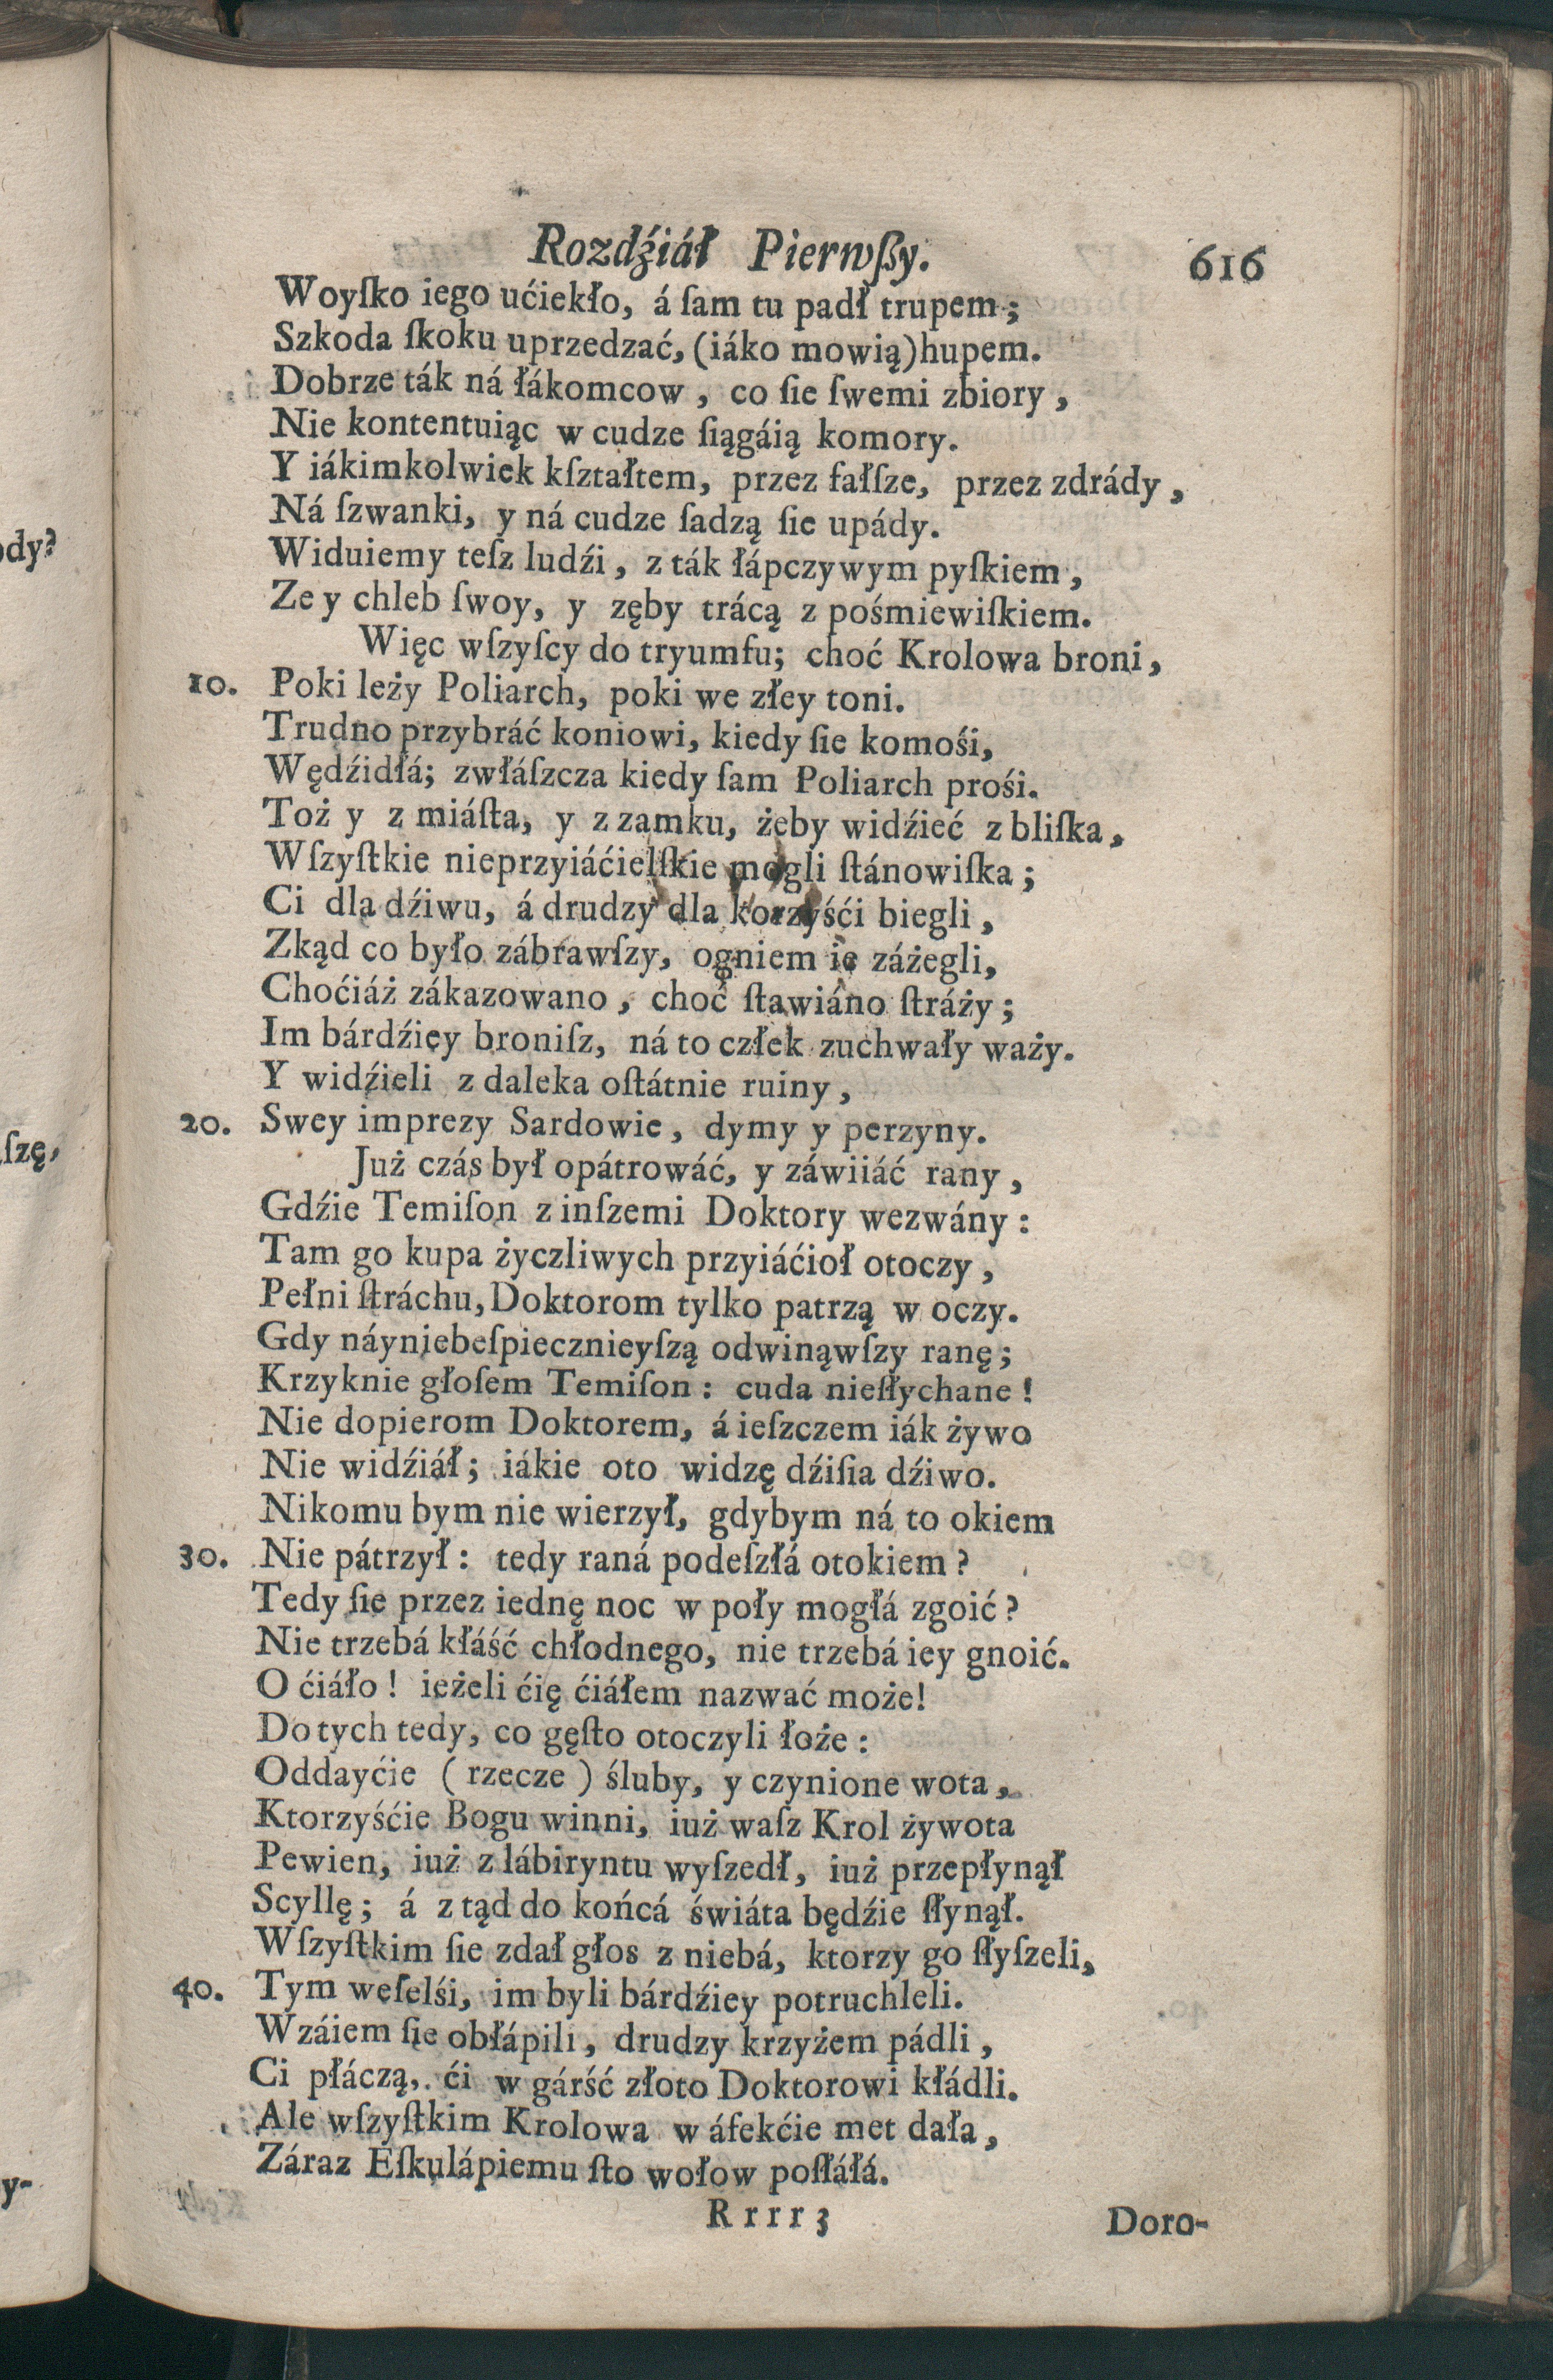 Rozdźiáł Pierwſzy. 616
Woyſko iego ućiekło, á ſam tu padł trupem;
Szkoda ſkoku uprzedzać, (iáko mowią)hupem.
Dobrze ták ná łákomcow, co ſie ſwemi zbiory,
Nie kontentuiąc w cudze ſiągáią komory.
Y iákimkolwiek kſztałtem, przez fałſze, przez zdrády,
Ná ſzwanki, y ná cudze ſadzą ſie upády.
Widuiemy teſz ludźi, z ták łápczywym pyſkiem,
Ze y chleb ſwoy, y zęby trácą z pośmiewiſkiem.
Więc wſzyſcy do tryumfu; choć Krolowa broni,
10. Poki leży Poliarch, poki we złey toni.
Trudno przybráć koniowi, kiedy ſie komośi,
Wędźidłá; zwłáſzcza kiedy ſam Poliarch prośi.
Toż y z miáſta, y z zamku, żeby widźieć z bliſka,
Wſzyſtkie nieprzyiáćielſkie mogli ſtánowiſka;
Ci dla dźiwu, á drudzy dla korzyśći biegli,
Zkąd co było zábrawſzy, ogniem ie záżegli,
Choćiáż zákazowano, choć ſtawiáno ſtráży;
Im bárdźiey broniſz, ná to człek zuchwały waży.
Y widźieli z daleka oſtátnie ruiny,
20. Swey imprezy Sardowie, dymy y perzyny.
Już czás był opátrowáć, y záwiiáć rany,
Gdźie Temiſon z inſzemi Doktory wezwány:
Tam go kupa życzliwych przyiáćioł otoczy,
Pełni ſtráchu, Doktorom tylko patrzą w oczy.
Gdy náyniebeſpiecznieyſzą odwinąwſzy ranę;
Krzyknie głoſem Temiſon: cuda nieſłychane!
Nie dopierom Doktorem, á ieſzczem iák żywo
Nie widźiáł; iákie oto widzę dźiſia dźiwo.
Nikomu bym nie wierzył, gdybym ná to okiem
30. Nie pátrzył: tedy raná podeſzłá otokiem?
Tedy ſie przez iednę noc w poły mogłá zgoić?
Nie trzebá kłáść chłodnego, nie trzebá iey gnoić.
O ćiáło! ieżeli ćię ćiáłem nazwać może!
Do tych tedy, co gęſto otoczyli łoże:
Oddayćie ( rzecze ) śluby, y czynione wota,
Ktorzyśćie Bogu winni, iuż waſz Krol żywota
Pewien, iuż z lábiryntu wyſzedł, iuż przepłynął
Scyllę; á z tąd do końcá świáta będźie ſłynął.
Wſzyſtkim ſie zdał głos z niebá, ktorzy go ſłyſzeli,
40. Tym weſelśi, im byli bárdźiey potruchleli.
Wzáiem ſie obłápili, drudzy krzyżem pádli,
Ci płáczą, ći w gárść złoto Doktorowi kłádli.
Ale wſzyſtkim Krolowa w áfekćie met dała,
Záraz Eſkulápiemu ſto wołow poſłáłá.
Rrrr3 Doro-
ody?
ſzę,
y-